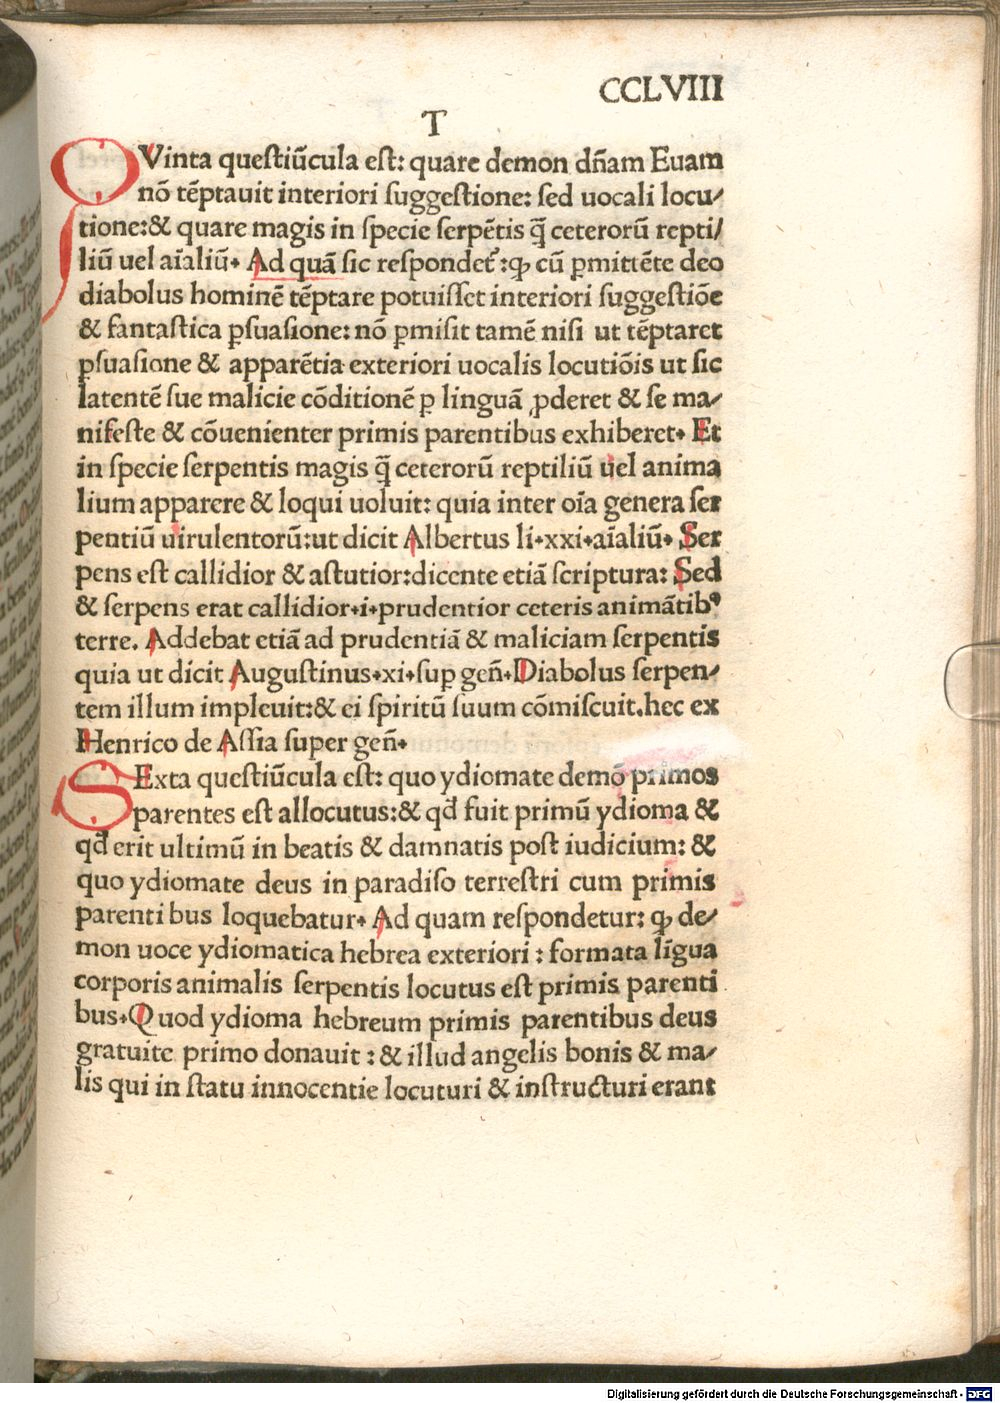 CCLVIII
T
QVinta questiũcula est: quare demon dñam Euam
nõ tẽptauit interiori suggestione: sed uocali locu/
tione:& quare magis in specie serpẽtis q̃ ceterorũ repti/
liũ uel aĩaliũ. Ad quã sic respondet᷑:ꝙ cũ ꝑmittẽte deo
diabolus hominẽ tẽptare potuisset interiori suggestiõe
& fantastica ꝑsuasione: nõ ꝑmisit tamẽ nisi ut tẽptaret
ꝑsuasione & apparẽtia exteriori uocalis locutiõis ut sic
latentẽ sue malicie cõditionẽ ꝑ linguã ꝓderet & se ma/
nifeste & cõuenienter primis parentibus exhiberet. Et
in specie serpentis magis q̃ ceterorũ reptiliũ uel anima
lium apparere & loqui uoluit: quia inter oĩa genera ser
pentiũ uirulentorũ:ut dicit Albertus li.xxi.aĩaliũ. Ser
pens est callidior & astutior:dicente etiã scriptura: Sed
& serpens erat callidior.i.prudentior ceteris animãtibꝰ
terre. Addebat etiã ad prudentiã & maliciam serpentis
quia ut dicit Augustinus.xi.suꝑ geñ.Diabolus serpen/
tem illum impleuit:& ei spiritũ suum cõmiscuit.hec ex
Henrico de Assia super geñ.
SExta questiũcula est: quo ydiomate demõ primos
parentes est allocutus:& qđ fuit primũ ydioma &
qđ erit ultimũ in beatis & damnatis post iudicium: &
quo ydiomate deus in paradiso terrestri cum primis
parenti bus loquebatur. Ad quam respondetur: ꝙ de/
mon uoce ydiomatica hebrea exteriori : formata lĩgua
corporis animalis serpentis locutus est primis parenti
bus.Quod ydioma hebreum primis parentibus deus
gratuite primo donauit : & illud angelis bonis & ma/
lis qui in statu innocentie locuturi & instructuri erant
Digitalisierung gefördert durch die Deutsche Forschungsgemeinschaft - DFG